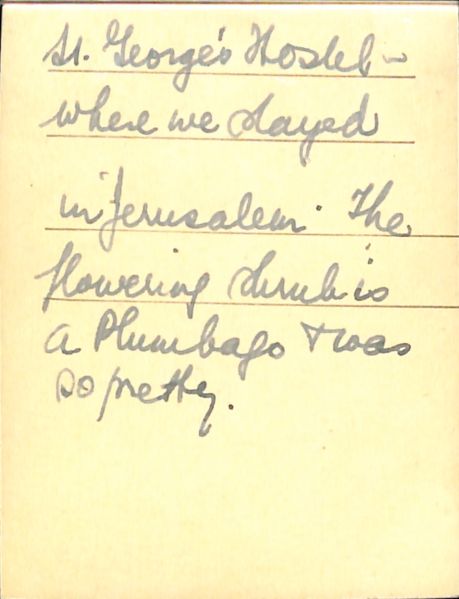 St. George's Hostel -
where we stayed
in Jerusalem. The
flowering shrub is
a Plumbago & was
so pretty.